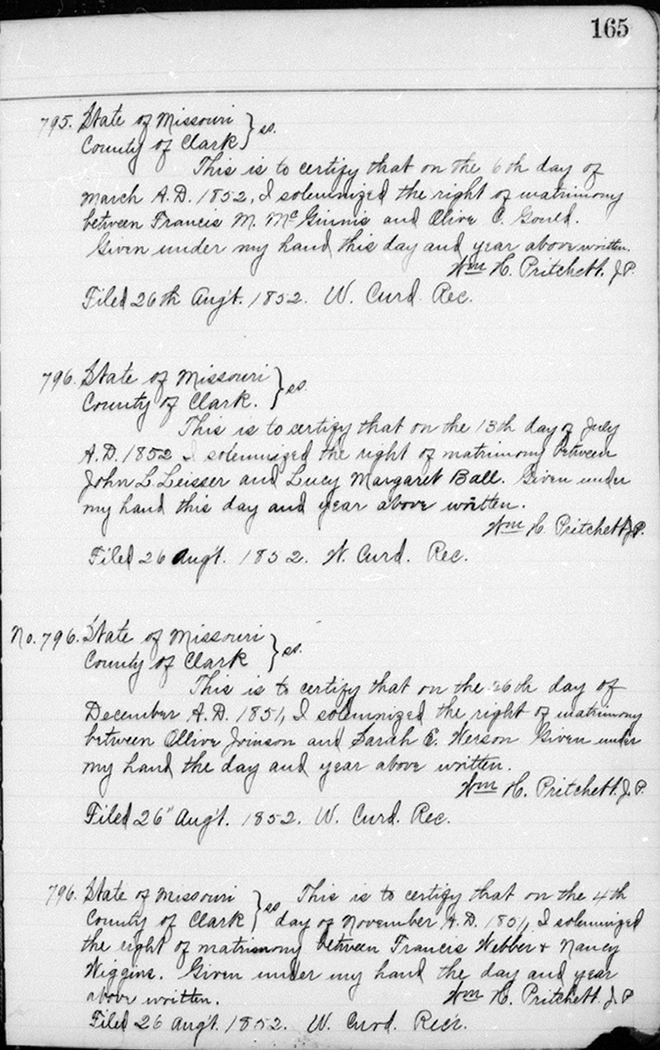 165
795. State of Missouri } ss.
County of Clark
This is to certify that on the 6th day of
March A.D. 1852, I solemnized the right of matrimony
between Francis M. McGinnis and Olive C. Gould.
Given under my hand this day and year above written.
Wm H. Pritchett. J.P.
Filed 26th Aug't. 1852. W. Curd. Rec.
796. State of Missouri } ss.
County of Clark.
This is to certify that on the 13th day of July
A.D. 1852 I solemnized the right of matrimony between
John L Leisser and Lucy Margaret Ball. Given under
my hand this day and year above written.
Wm H. Pritchett J.P.
Filed 26 Aug't. 1852. W. Curd. Rec.
No. 796. State of Missouri } ss.
County of Clark
This is to certify that on the 26th day of
December A.D. 1851, I solemnized the right of matrimony
between Ollive Joinson and Sarah E. Werson Given under
my hand the day and year above written.
Wm H. Pritchett. J.P.
Filed 26" Aug't. 1852. W. Curd. Rec.
796. State of Missouri } ss This is to certify that on the 4th
County of Clark day of November A.D. 1851, I solemnized
the right of matrimony between Francis Webber & Nancy
Wiggins. Given under my hand the day and year
above written. Wm H. Pritchett. J.P
Filed 26 Aug't. 1852. W. Curd. Recr.